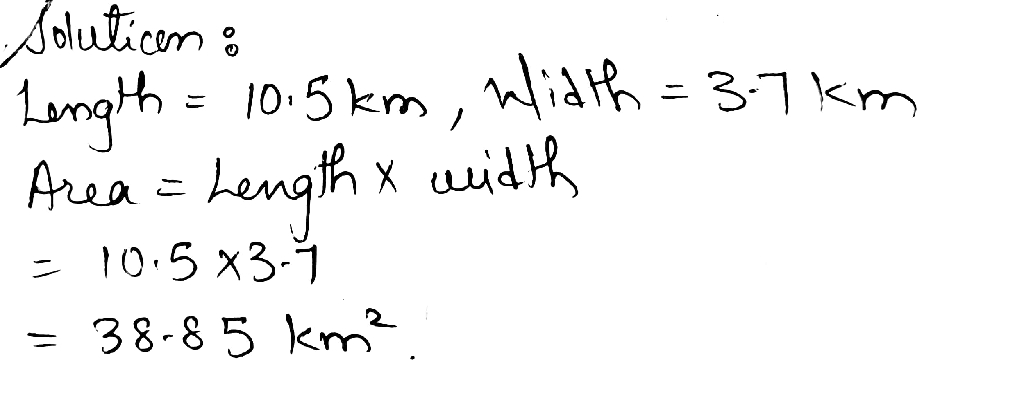 Solution :
Length = 10.5 km, Width = 3.7 km
Area = Length x width
= 10.5 x 3.7
= 38.85 km².